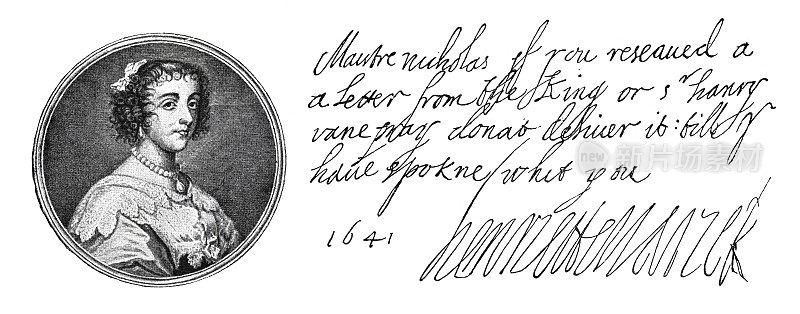 Maistre nicholas if you reseaued a
a Letter from the King or sr hanry
vane pray donat deliuer it till y
haue spokne whit you
1641
henriette Marie R
iStock